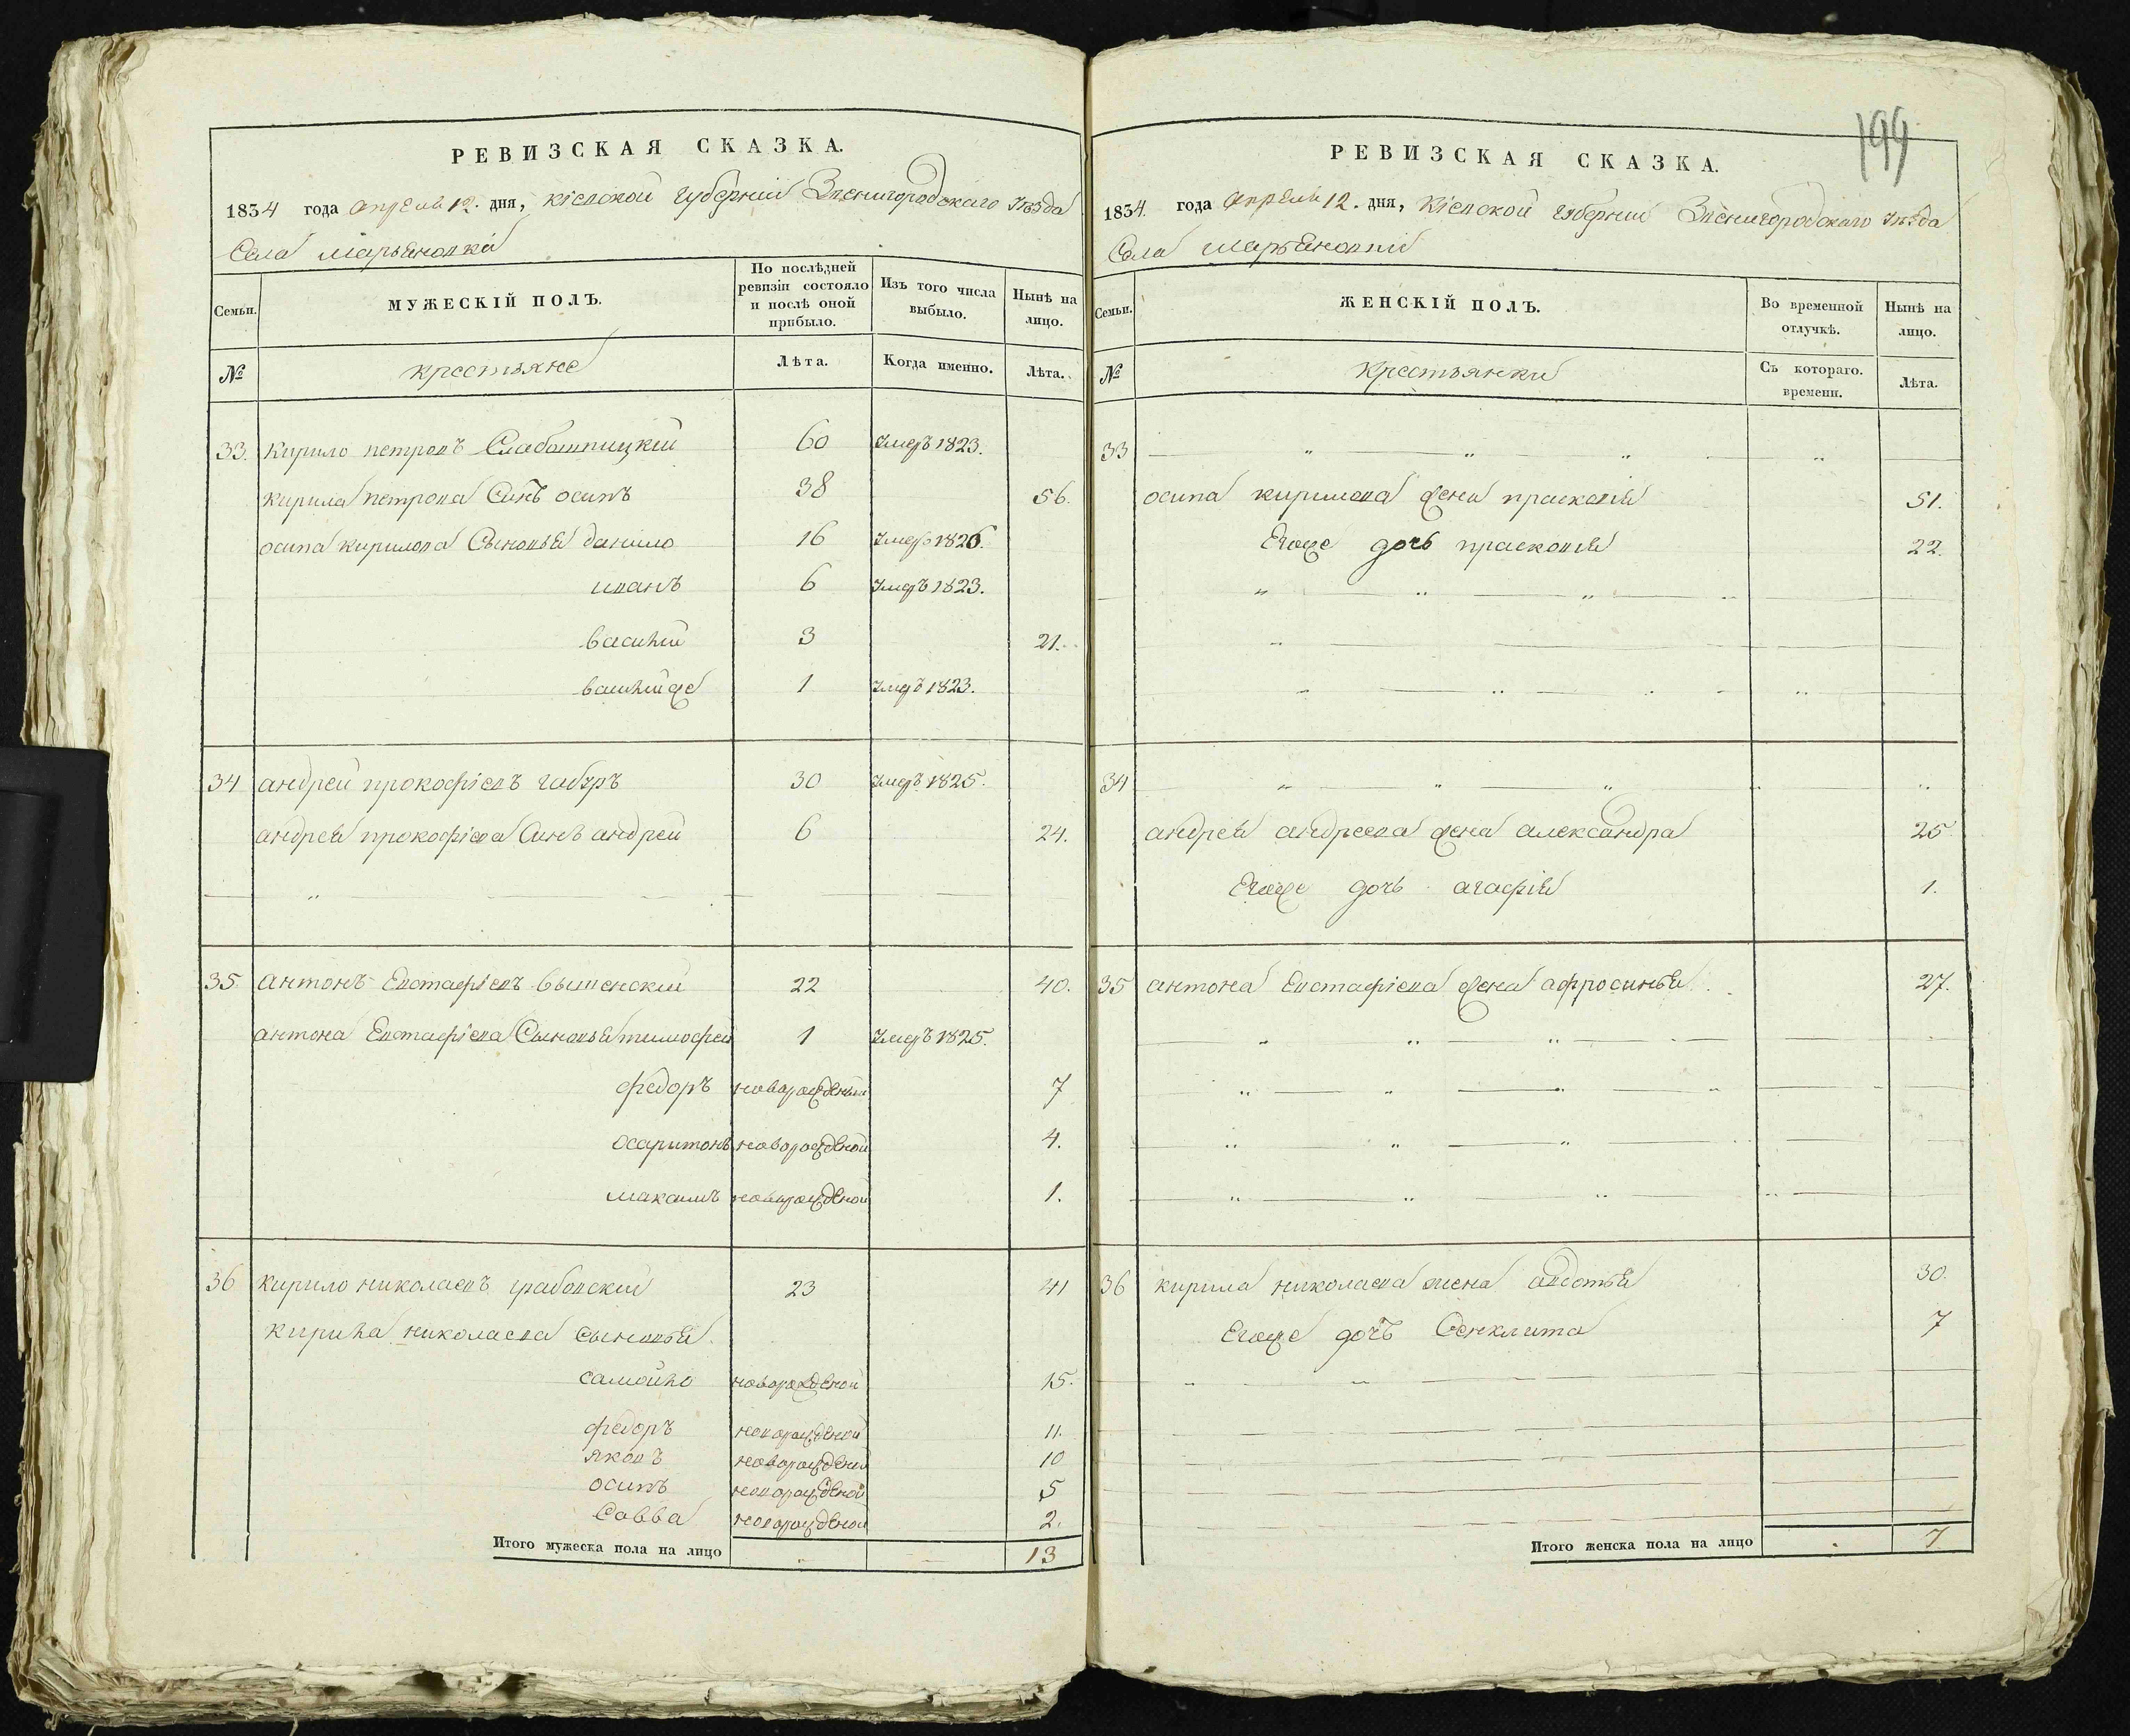 РЕВИЗСКАЯ СКАЗКА.
1834 года апреля 12. дня, Кіевской губерніи Звенигородского уѣзда
Села Марьяновки
Семьи. МУЖЕСКІЙ ПОЛЪ. По послѣдней ревизіи состояло и послѣ оной прибыло. Изъ того числа выбыло. Нынѣ на лицо.
№ крестьяне Лѣта. Когда именно. Лѣта.
33. кирило петровъ Слабошпицкій 60 умеръ 1823.
кирила петрова Синъ осипъ 38 56.
осипа кирилова Сыновья данило 16 умеръ 1826.
иванъ 6 умеръ 1823.
василий 3 21.
василий же 1 умеръ 1823.
34 андрей прокофіевъ 30 умеръ 1825.
андрея прокофіева Синъ андрей 6 24.
35. антонъ Евстафіевъ 22 40.
антона Евстафіева Сыновья тимофей 1 умеръ 1825.
федоръ новорожденый 7
харитонъ новорожденой 4.
максимъ новорожденой 1.
36 кирило николаевъ грабовский 23 41
кирила николаева сыновья
самойло новорожденой 15.
федоръ новорожденой 11.
яковъ новорожденой 10
осипъ новорожденой 5
Савва новорожденой 2.
Итого мужеска пола на лицо 13
199
РЕВИЗСКАЯ СКАЗКА.
1834. года апреля 12. дня, Кіевской губерніи Звенигородскаго уѣзда
Села Марьяновки
Семьи. ЖЕНСКІЙ ПОЛЪ. Во временной отлучкѣ. Нынѣ на лицо.
№ Крестьянки Съ котораго времени. Лѣта.
33
осипа кирилова жена прасковія 51.
Егоже дочь прасковія 22.
34
андрея андреева жена александра 25
Егоже дочь агафія 1.
35 антона Евстафіева жена афросинья 27.
36 кирила николаева жена авдотья 30.
Егоже дочъ Сенклита 7
Итого женска пола на лицо 7